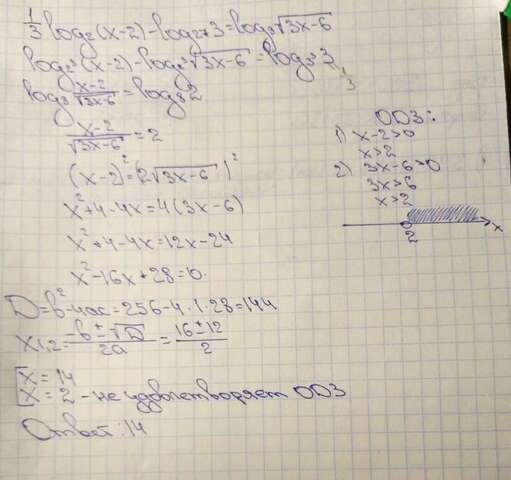 1/3 log₂(x-2) - log₂₇3 = log₈√3x-6
log₂³(x-2) - log₂³√3x-6 = log₃³3
1/3
log₈ x-2/√3x-6 = log₈2
x-2/√3x-6 = 2
(x-2)² = (2√3x-6)²
x²+4-4x=4(3x-6)
x²+4-4x=12x-24
x²-16x+28=0.
D=b²-4ac=256-4·1·28=144
x1,2 = -b±√D/2a = 16±12/2
[x = 14
[x = 2 - не удовлетворяет ОДЗ
Ответ: 14
ОДЗ:
1) x-2>0
x>2
2) 3x-6>0
3x>6
x>2
2 x